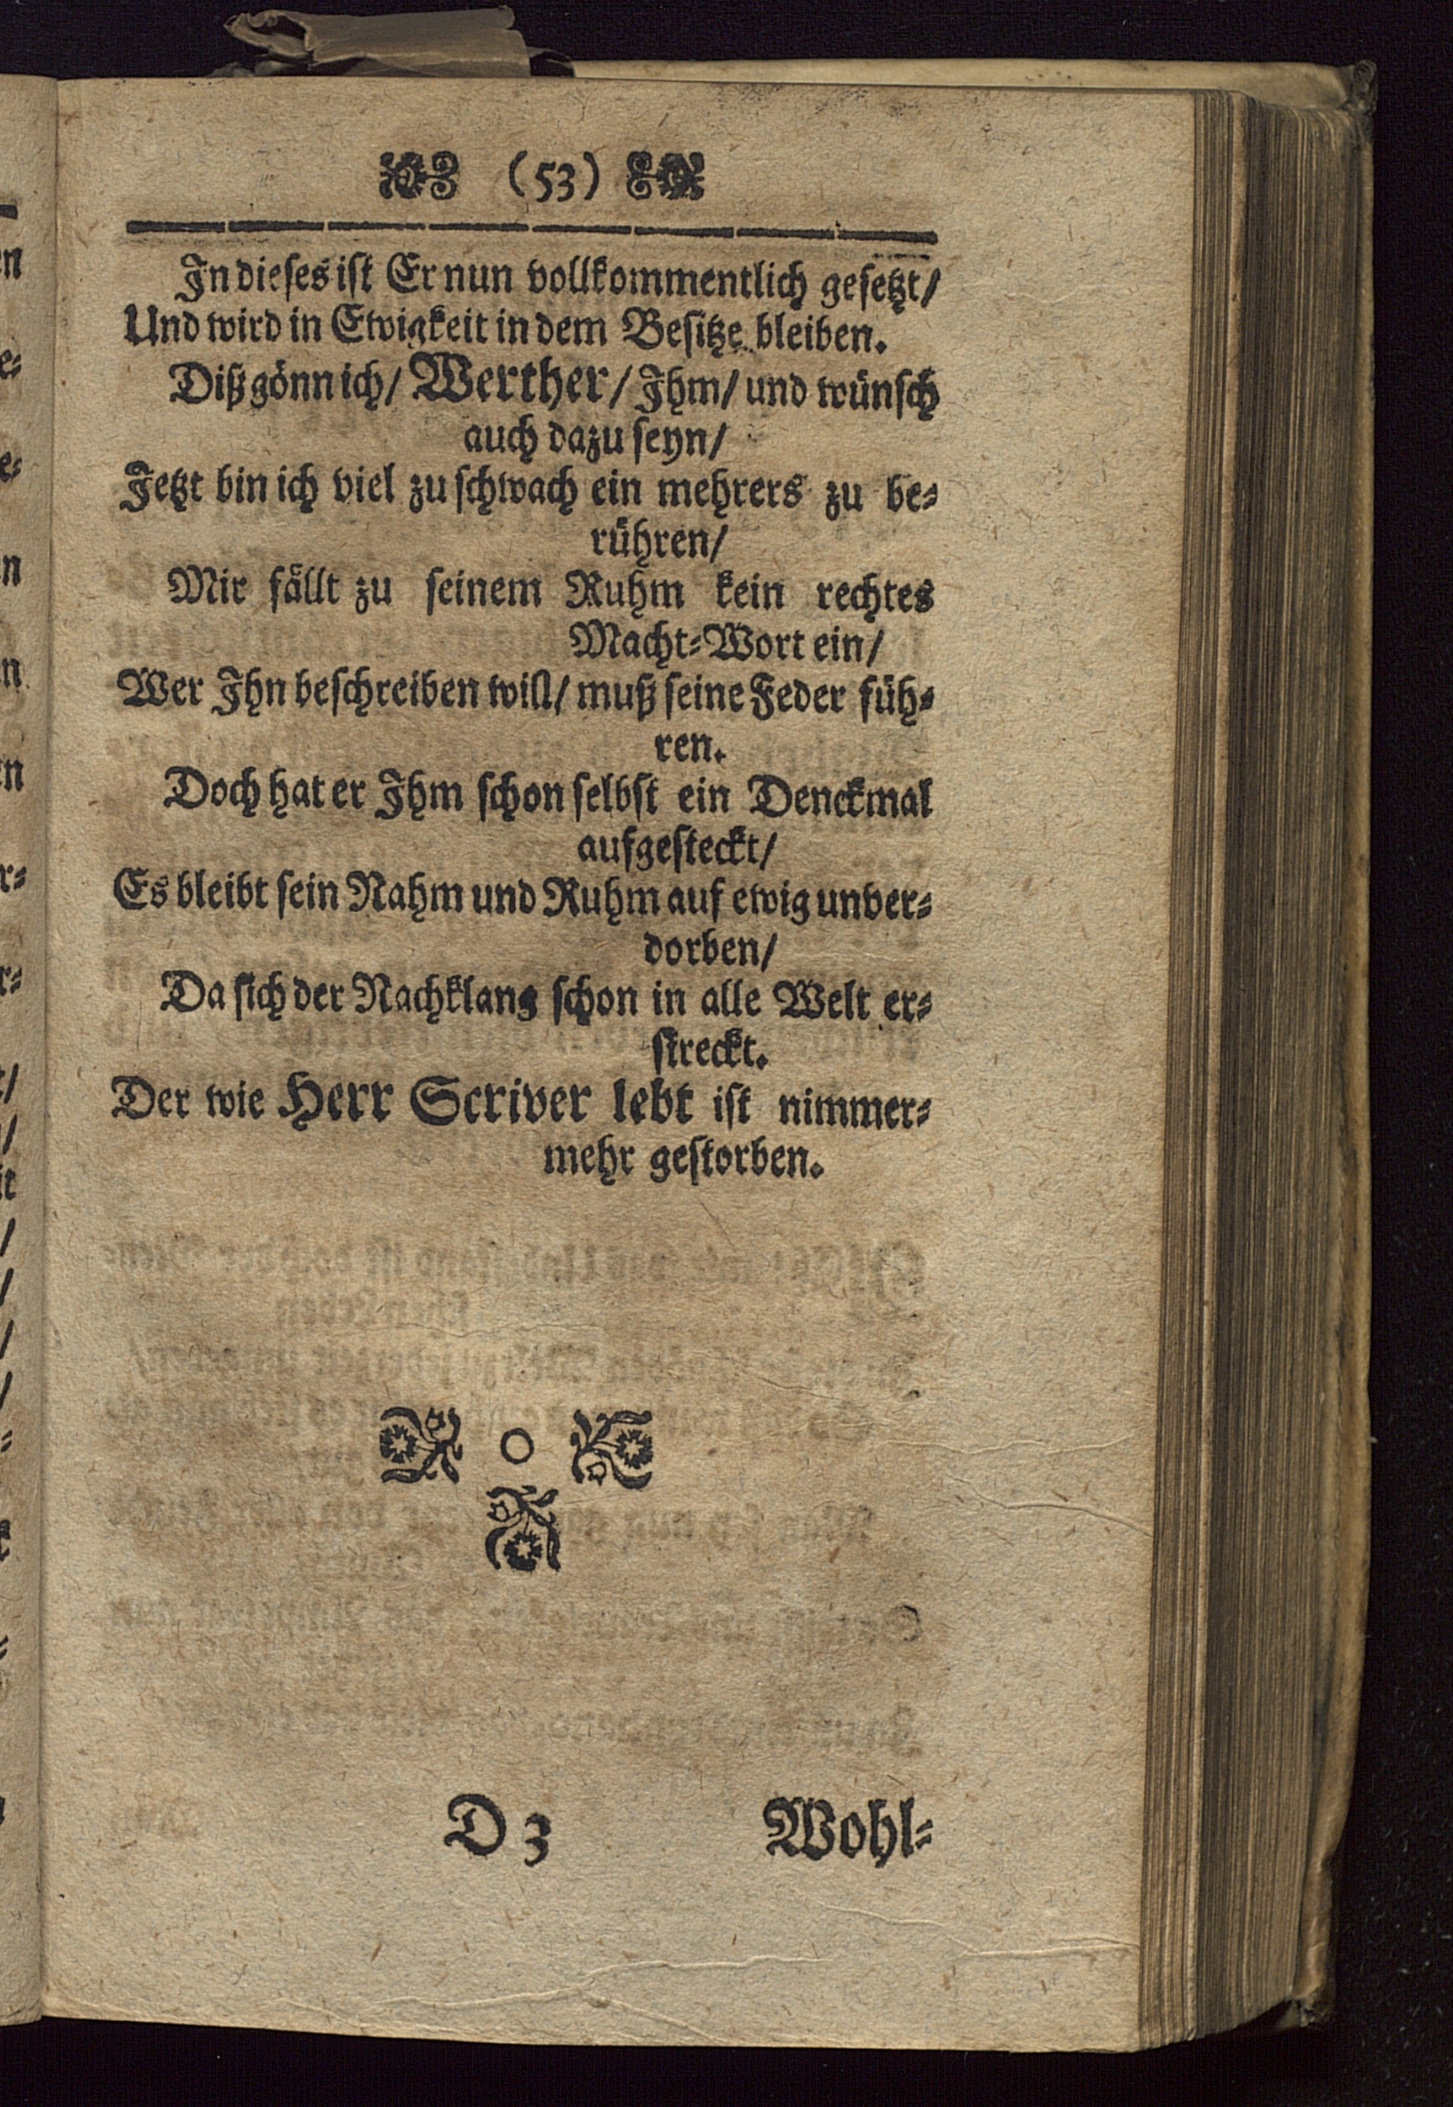 (53)
In dieses ist Er nun vollkommentlich gesetzt/
Und wird in Ewigkeit in dem Besitze bleiben.
Diß gönn ich/ Werther/ Ihm/ und wünsch
auch dazu seyn/
Jetzt bin ich viel zu schwach ein mehrers zu be-
rühren/
Mir fällt zu seinem Ruhm kein rechtes
Macht-Wort ein/
Wer Ihn beschreiben will/ muß seine Feder füh-
ren.
Doch hat er Ihm schon selbst ein Denckmal
aufgesteckt/
Es bleibt sein Nahm und Ruhm auf ewig unver-
dorben/
Da sich der Nachklang schon in alle Welt er-
streckt.
Der wie Herr Scriver lebt ist nimmer-
mehr gestorben.
D 3 Wohl-